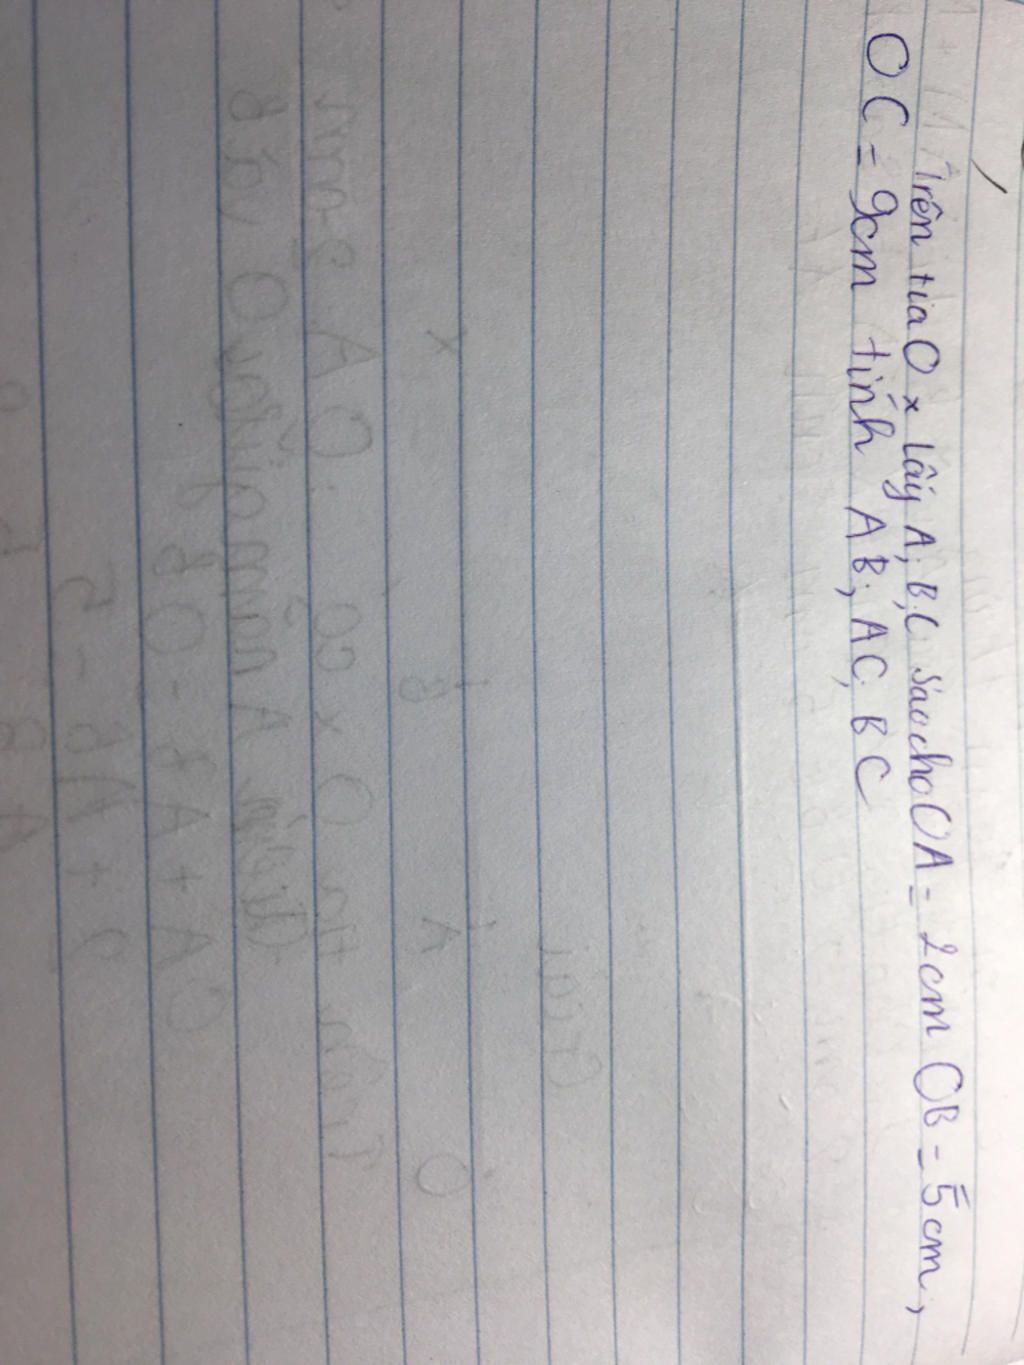 Trên tia Ox lấy A; B; C sao cho OA = 2cm OB = 5cm,
OC = 9cm tính AB; AC; BC